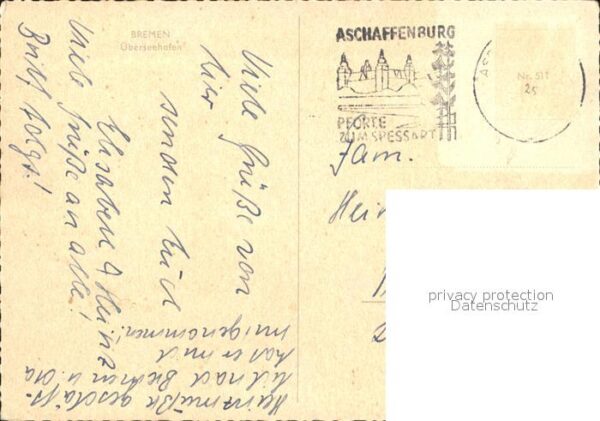 BREMEN
Überseehafen
Viele Grüße von
hier
senden Euch
Elisabeth & Heinz
Viele Grüße an alle!
Brief folgt!
Heinz mußte geschäft-
lich nach Bremen u. da
hat er mich
mitgenommen!
ASCHAFFENBURG
PFORTE
ZUM SPESSART
Nr. 511
25
Fam.
Hein
privacy protection
Datenschutz